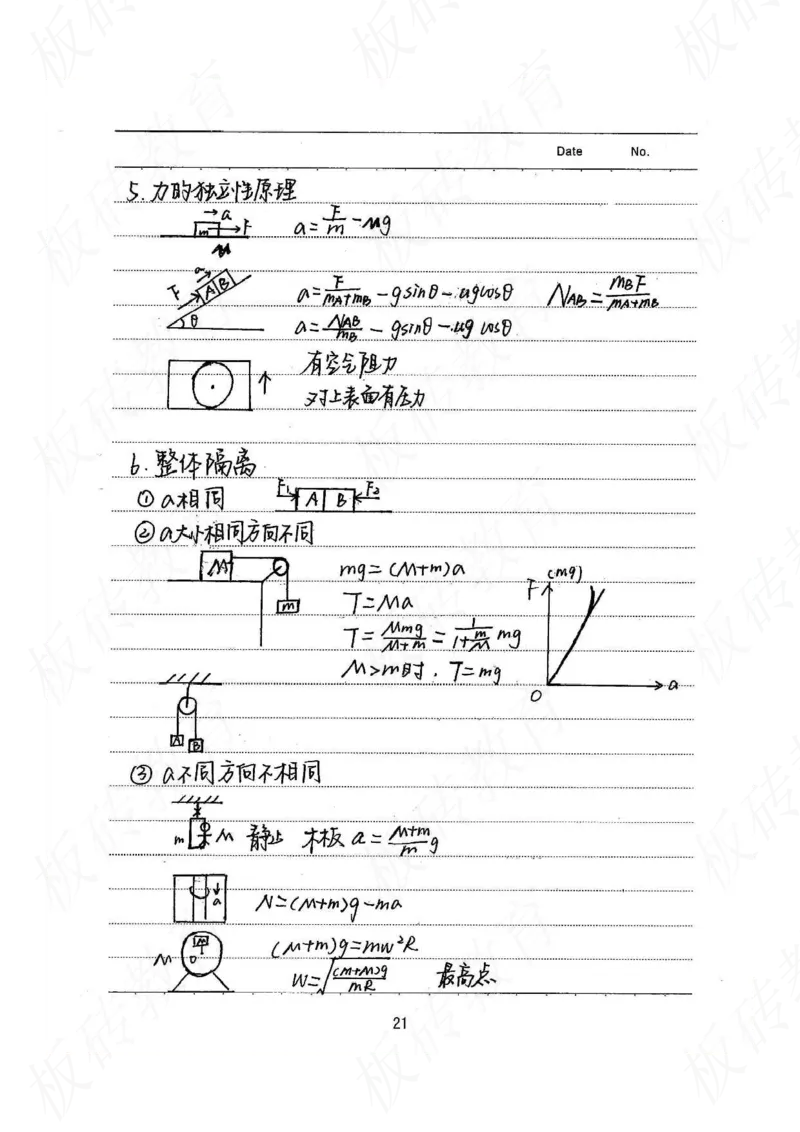 Date No.
5. 力的独立性原理
→a
m F a = F/m - μg
μ
a F A B θ a = F/(mA+mB) - gsinθ - μgcosθ NAB = mBF/(mA+mB)
a = NAB/mB - gsinθ - μg cosθ
有空气阻力
对上表面有压力
6. 整体隔离
① a相同 F1 A B F2
② a大小相同方向不同
M m mg = (M+m)a
T = Ma
T = Mmg/(M+m) = 1/(1+m/M) mg
M>m时, T=mg
F (mg) a O
A B
③ a不同方向不相同
m M 静止 木板 a = (M+m)/m g
a N = (M+m)g - ma
M O (M+m)g = mw²R
W = √((M+m)g/mR) 最高点
21
板砖教育